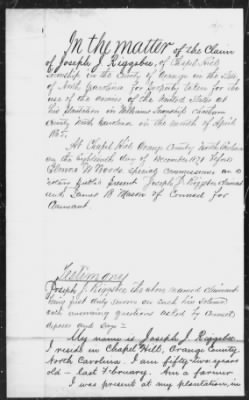 In the matter of the Claim
of Joseph J. Riggsbee, of Chapel Hill
Township in the County of Orange in the State
of North Carolina for property taken for the
use of the armies of the United States at
his plantation in Williams Township Chatham
County North Carolina in the month of April
1865.
At Chapel Hill Orange County North Carolina
on the eighteenth day of December 1871 before
Woods special commissioner
Present Joseph J. Riggsbee Claimant
with James B Mason of Counsel for
Claimant.
Testimony
Joseph J. Riggsbee the above named claimant
being first duly sworn on such his solemn
oath answering questions asked by counsel
deposes and says =
My name is Joseph J. Riggsbee.
I reside in Chapel Hill, Orange County,
North Carolina. I am fifty-two years
old - last February. Am a farmer
I was present at my plantation, in